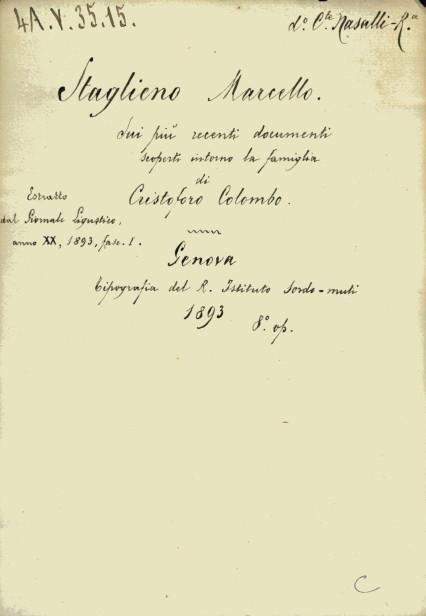 4A.V.35.15.
d.º C.te Nasalli-R.a
Staglieno Marcello.
Sui più recenti documenti
scoperti intorno la famiglia
di
Cristoforo Colombo.
Estratto
dal Giornale Ligustico,
anno XX, 1893, fasc. 1.
Genova
Tipografia del R. Istituto Sordo-muti
1893
8.º op.
C